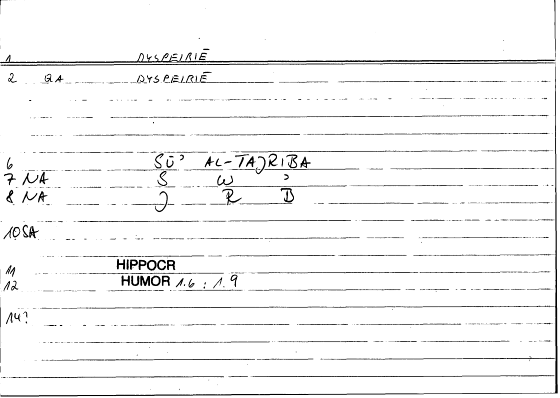 1 DYSPEIRIĒ
2 QA DYSPEIRIĒ
6 SŪʾ AL-TAJRIBA
7 NA S W ʾ
8 NA J R B
10 SA
11 HIPPOCR
12 HUMOR 1.6 : 1.9
14?